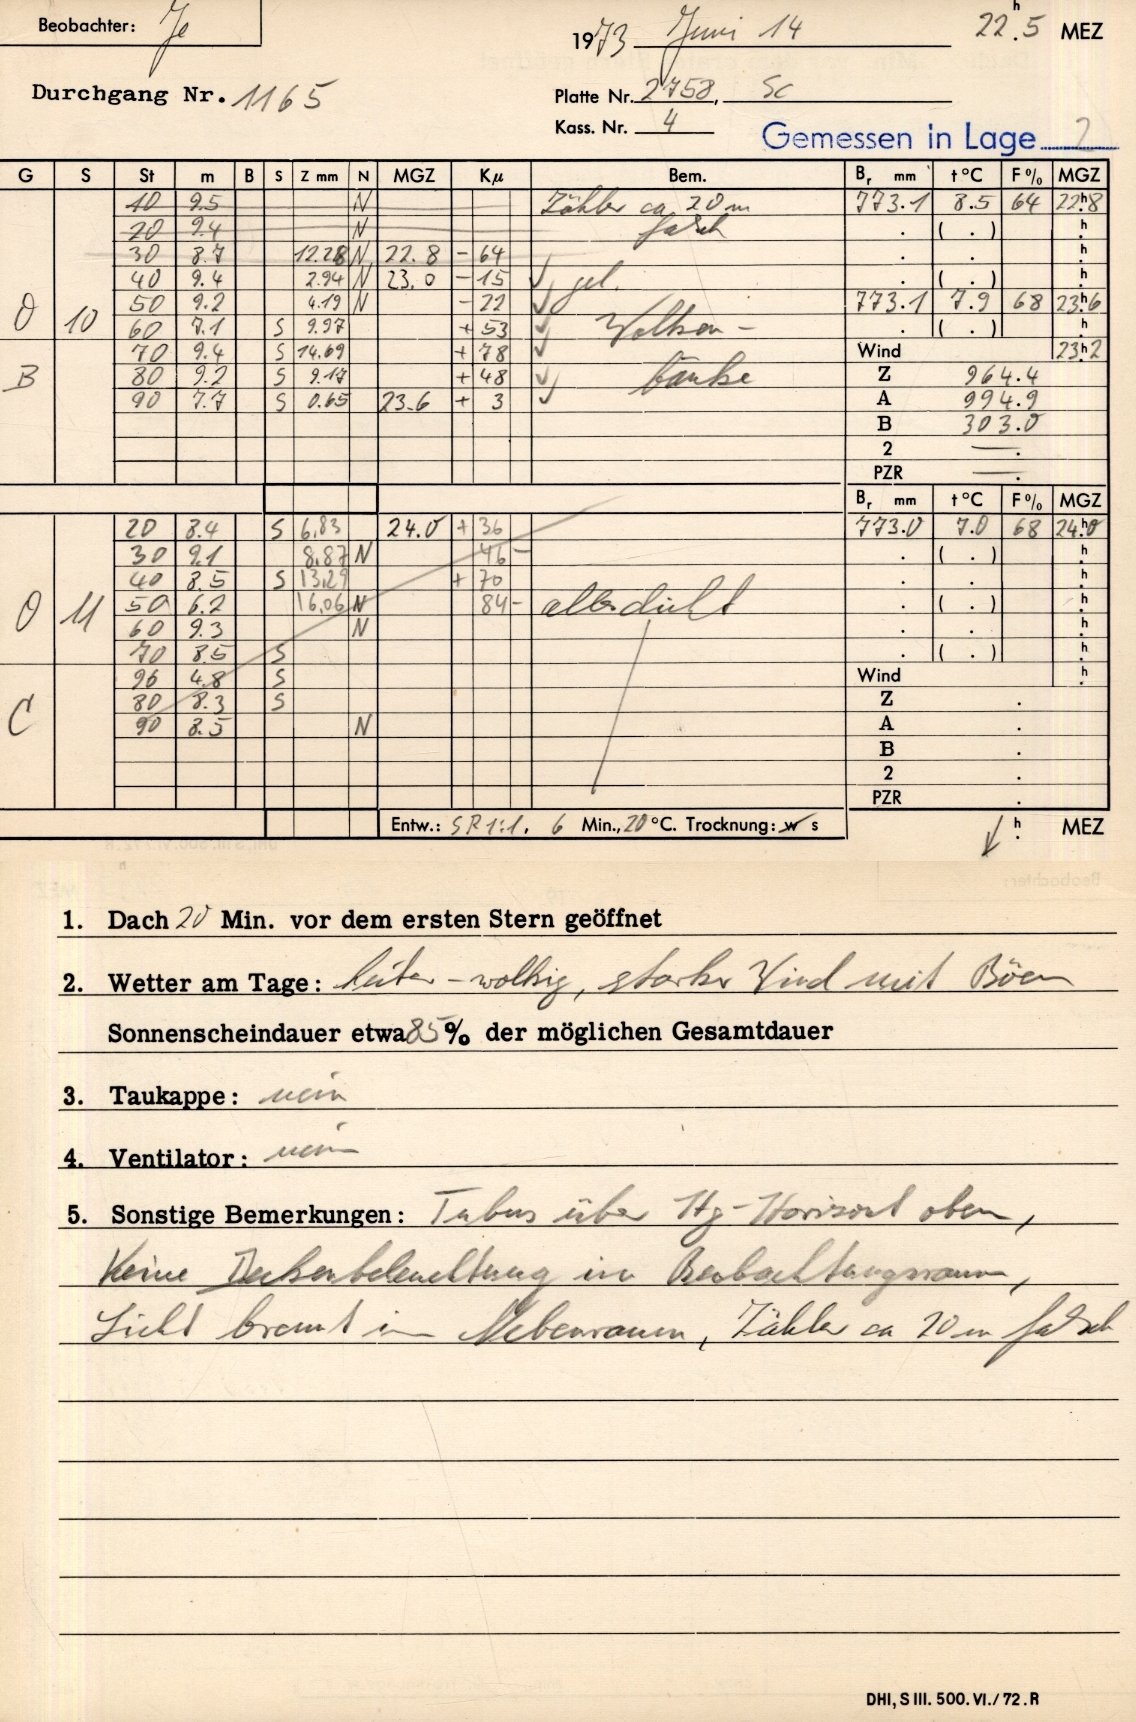 Beobachter: Je
1973 Juni 14 22.5 h MEZ
Durchgang Nr. 1165
Platte Nr. 2758, Sc
Kass. Nr. 4
Gemessen in Lage 2
G S St m B S Z mm N MGZ Kμ Bem. Br mm t °C F % MGZ
10 9.5 N Zähler ca 20 m 773.1 8.5 64 22h.8
20 9.4 N falsch . ( . ) h.
30 8.7 12.28 N 22.8 - 64 . . h.
40 9.4 2.94 N 23.0 - 15 ✓ gel. . ( . ) h.
O 10 50 9.2 4.19 N - 22 ✓ 773.1 7.9 68 23h.6
60 7.1 S 9.97 + 53 ✓ Wolken- . ( . ) h.
70 9.4 S 14.69 + 78 ✓ Wind 23h.2
B 80 9.2 S 9.17 + 48 ✓ bänke Z 964.4
90 7.7 S 0.65 23.6 + 3 ✓ A 994.9
B 303.0
2 — .
PZR — .
Br mm t °C F % MGZ
20 8.4 S 6.83 24.0 + 36 773.0 7.0 68 24h.0
30 9.1 8.87 N 46 - . ( . ) h.
40 8.5 S 13.29 + 70 . . h.
O 11 50 6.2 16.06 N 84 - alles dicht . ( . ) h.
60 9.3 N . . h.
70 8.5 S . ( . ) h.
96 4.8 S Wind h.
C 80 8.3 S Z .
90 8.5 N A .
B .
2 .
PZR .
Entw.: SR 1:1. 6 Min., 20 °C. Trocknung: w s h. MEZ
1. Dach 20 Min. vor dem ersten Stern geöffnet
2. Wetter am Tage: heiter - wolkig, starker Wind mit Böen
Sonnenscheindauer etwa 85 % der möglichen Gesamtdauer
3. Taukappe: nein
4. Ventilator: nein
5. Sonstige Bemerkungen: Tubus über Hg-Horizont oben,
Keine Deckenbeleuchtung im Beobachtungsraum,
Licht brennt im Nebenraum, Zähler ca 20 m falsch
DHI, S III. 500. VI./72. R